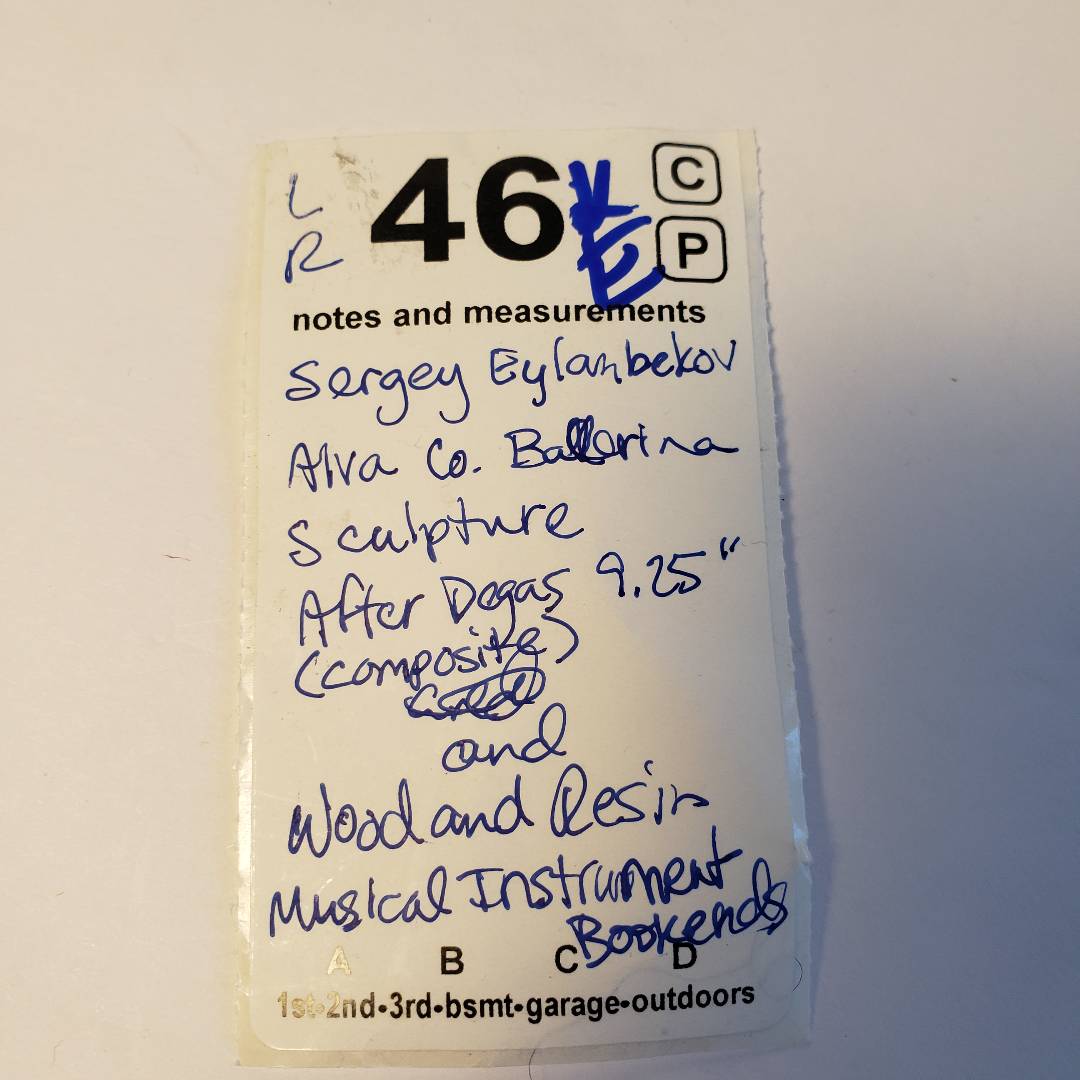 L
R
46 VE
C
P
notes and measurements
Sergey Eylanbekov
Alva Co. Ballerina
Sculpture
After Degas 9.25"
(composite)
and
Wood and Resin
Musical Instrument
Bookends
A B C D
1st•2nd•3rd•bsmt•garage•outdoors